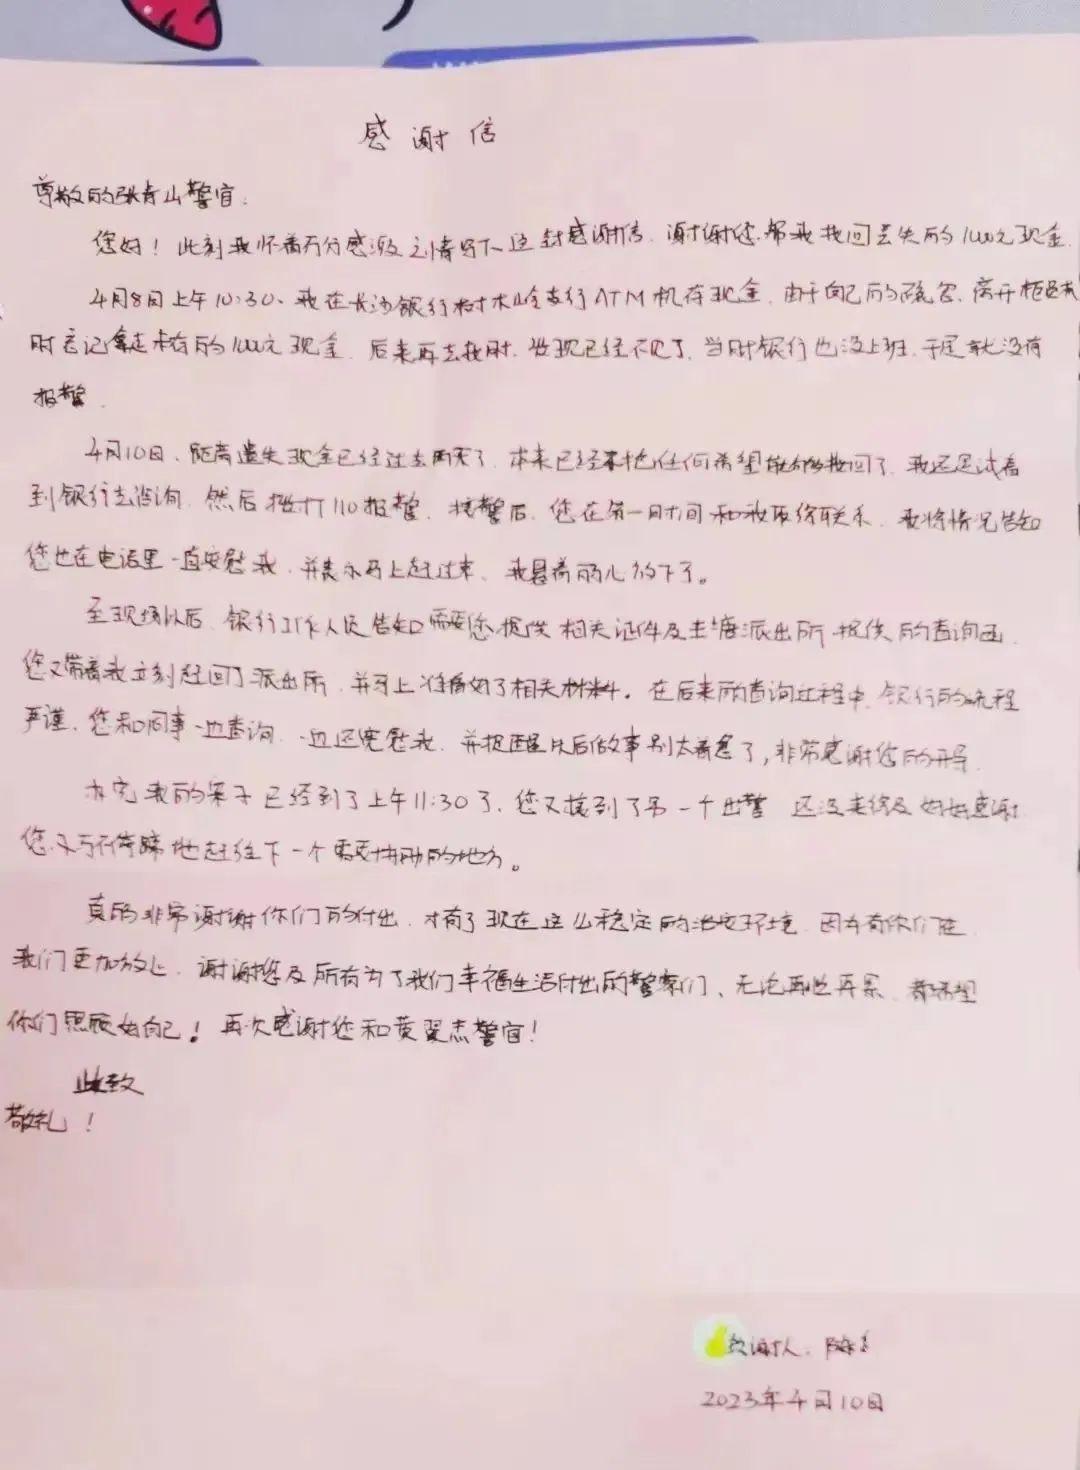 感谢信
尊敬的张青山警官:
您好！此刻我怀着万分感激之情写下这封感谢信，谢谢您帮我找回丢失的1000元现金
4月8日上午10:30、我在长沙银行树木岭支行ATM机存现金，由于自己的疏忽，离开柜台
时忘记拿走未存的1000元现金，后来再去找时，发现已经不见了，当时银行也没上班，于是就没有
报警．
4月10日、距离遗失现金已经过去两天了，本来已经不抱任何希望能够找回了，我还是试着
到银行去咨询，然后拨打110报警，接警后，您在第一时间和我取得联系，我将情况告知
您也在电话里一直安慰我，并表示马上赶过来，我悬着的心放下了。
至现场以后，银行工作人员告知需要您提供相关证件及去 派出所提供的查询函，
您又带着我立刻赶回了派出所，并马上准备好了相关材料．在后来的查询过程中，银行的流程
严谨，您和同事一边查询，一边还宽慰我，并提醒以后做事别太着急了，非常感谢您的开导．
办完我的案子已经到了上午11:30了，您又接到了另一个出警，还没来得及好好感谢
您又马不停蹄地赶往下一个需要协助的地方。
真的非常谢谢你们的付出，才有了现在这么稳定的治安环境，因为有你们在，
我们更加放心，谢谢您及所有为了我们幸福生活付出的警察们、无论再忙再累，都希望
你们照顾好自己！再次感谢您和黄翼志警官！
此致
敬礼！
致谢人：陈
2023年4月10日